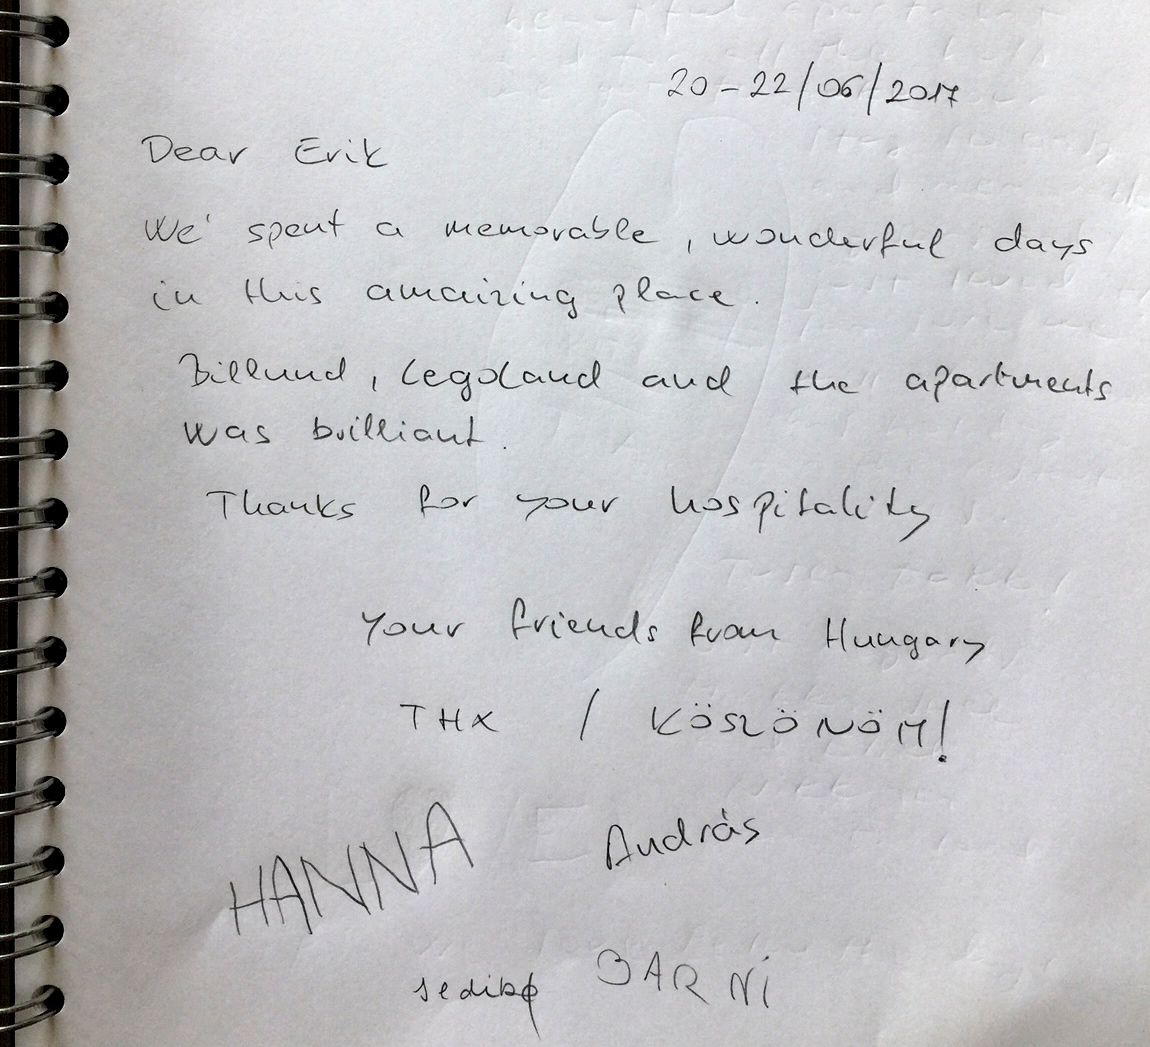 20-22/06/2017
Dear Erik
We' spent a memorable, wonderful days
in this amaizing place.
Billund, Legoland and the apartments
was brilliant.
Thanks for your hospitality
Your friends from Hungary
THX / KÖSZÖNÖM!
HANNA András
BARNI